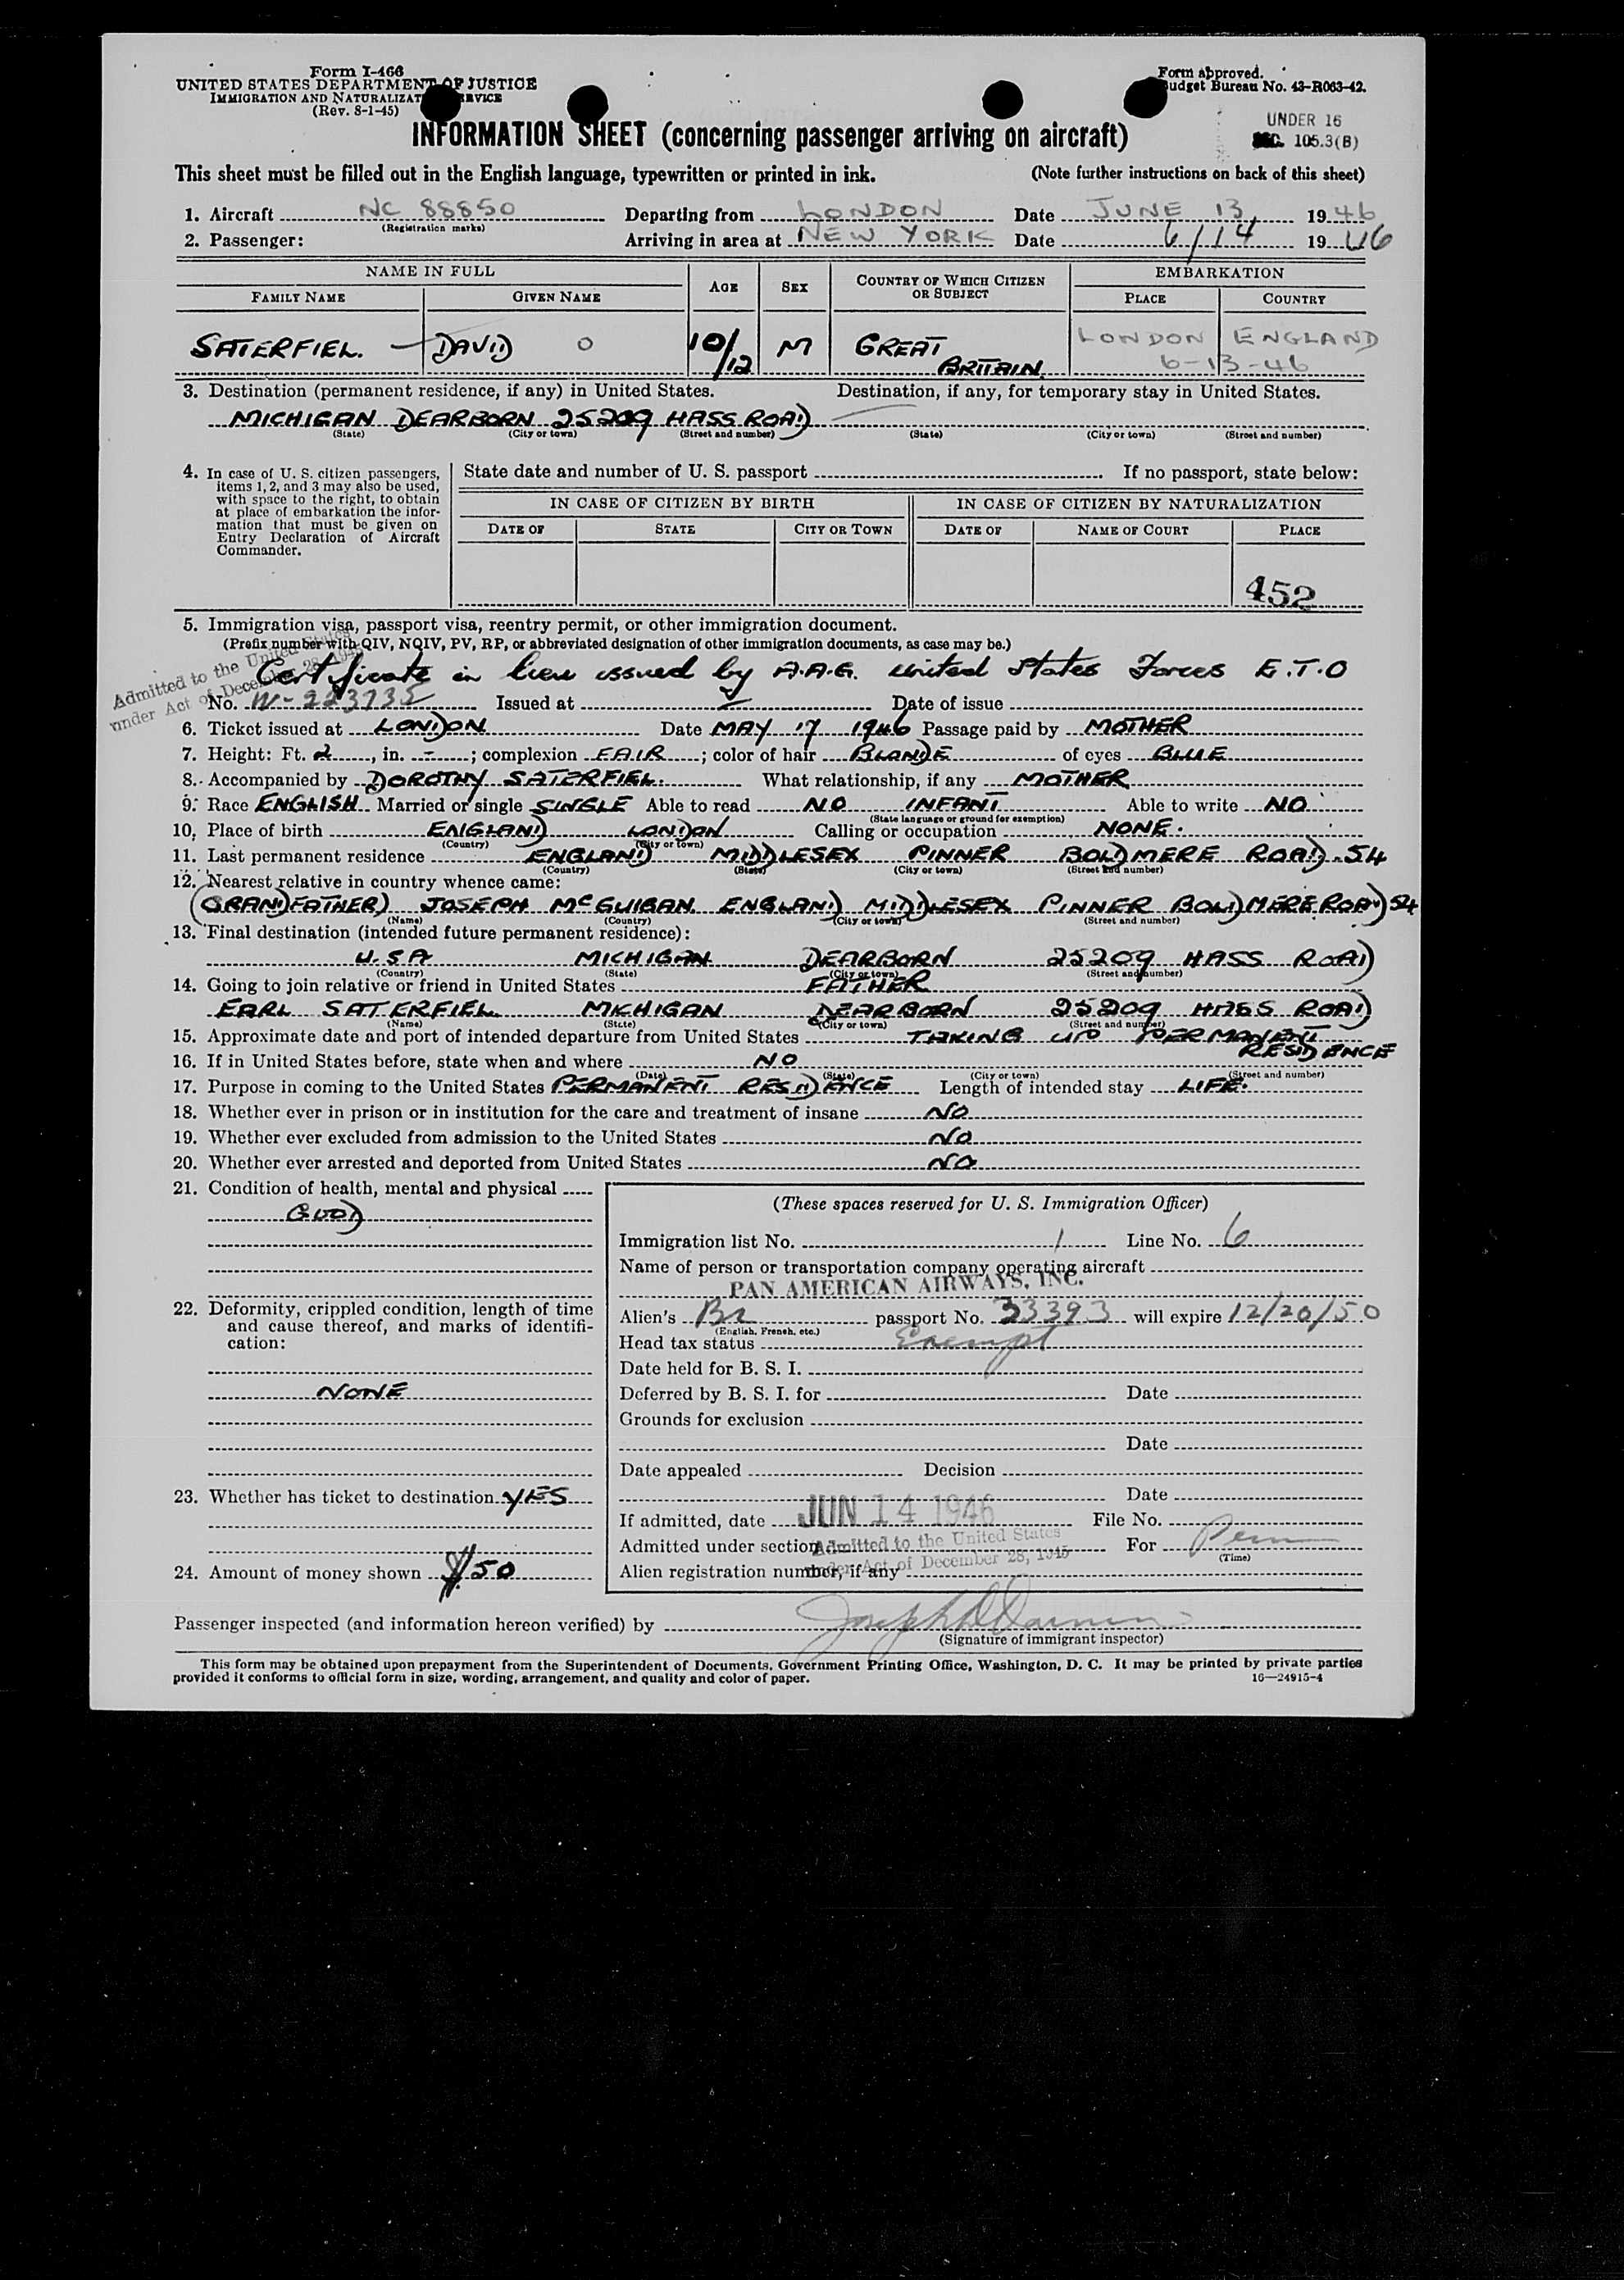 Form I-466
UNITED STATES DEPARTMENT OF JUSTICE
IMMIGRATION AND NATURALIZATION SERVICE
(Rev. 8-1-45)
Form approved.
Budget Bureau No. 43-R063-42.
UNDER 16
SEC. 105.3(B)
INFORMATION SHEET (concerning passenger arriving on aircraft)
This sheet must be filled out in the English language, typewritten or printed in ink. (Note further instructions on back of this sheet)
1. Aircraft NC 88850 Departing from LONDON Date JUNE 13, 1946
(Registration marks)
2. Passenger: Arriving in area at NEW YORK Date 6/14 1946
NAME IN FULL AGE SEX COUNTRY OF WHICH CITIZEN OR SUBJECT EMBARKATION
FAMILY NAME GIVEN NAME PLACE COUNTRY
SATERFIEL. DAVID O 10/12 M GREAT BRITAIN. LONDON ENGLAND
6-13-46
3. Destination (permanent residence, if any) in United States. Destination, if any, for temporary stay in United States.
MICHIGAN DEARBORN 25209 HASS ROAD
(State) (City or town) (Street and number) (State) (City or town) (Street and number)
4. In case of U. S. citizen passengers, items 1, 2, and 3 may also be used, with space to the right, to obtain at place of embarkation the information that must be given on Entry Declaration of Aircraft Commander.
State date and number of U. S. passport If no passport, state below:
IN CASE OF CITIZEN BY BIRTH IN CASE OF CITIZEN BY NATURALIZATION
DATE OF STATE CITY OR TOWN DATE OF NAME OF COURT PLACE
452
5. Immigration visa, passport visa, reentry permit, or other immigration document.
(Prefix number with QIV, NQIV, PV, RP, or abbreviated designation of other immigration documents, as case may be.)
Admitted to the United States
under Act of December 28, 1945
Certificate in lieu issued by A.A.G. United States Forces E.T.O
No. W-223735 Issued at Date of issue
6. Ticket issued at LONDON Date MAY 17 1946 Passage paid by MOTHER
7. Height: Ft. 2, in. -; complexion FAIR; color of hair BLONDE of eyes BLUE
8. Accompanied by DOROTHY SATERFIEL. What relationship, if any MOTHER
9. Race ENGLISH Married or single SINGLE Able to read NO INFANT Able to write NO
(State language or ground for exemption)
10. Place of birth ENGLAND LONDON Calling or occupation NONE.
(Country) (City or town)
11. Last permanent residence ENGLAND MIDDLESEX PINNER BOLDMERE ROAD. 54
(Country) (State) (City or town) (Street and number)
12. Nearest relative in country whence came:
(GRANDFATHER) JOSEPH McGUIGAN. ENGLAND MIDDLESEX PINNER BOLDMERE ROAD 54
(Name) (Country) (City or town) (Street and number)
13. Final destination (intended future permanent residence):
U.S.A MICHIGAN DEARBORN 25209 HASS ROAD
(Country) (State) (City or town) (Street and number)
14. Going to join relative or friend in United States FATHER
EARL SATERFIEL MICHIGAN DEARBORN 25209 HASS ROAD
(Name) (State) (City or town) (Street and number)
15. Approximate date and port of intended departure from United States TAKING UP PERMANENT RESIDENCE
16. If in United States before, state when and where NO
(Date) (State) (City or town) (Street and number)
17. Purpose in coming to the United States PERMANENT RESIDENCE Length of intended stay LIFE.
18. Whether ever in prison or in institution for the care and treatment of insane NO
19. Whether ever excluded from admission to the United States NO
20. Whether ever arrested and deported from United States NO
21. Condition of health, mental and physical
GOOD
22. Deformity, crippled condition, length of time and cause thereof, and marks of identification:
NONE
23. Whether has ticket to destination YES
24. Amount of money shown $50
(These spaces reserved for U. S. Immigration Officer)
Immigration list No. 1 Line No. 6
Name of person or transportation company operating aircraft
PAN AMERICAN AIRWAYS, INC.
Alien's Br passport No. 33393 will expire 12/20/50
(English, French, etc.)
Head tax status Exempt
Date held for B. S. I.
Deferred by B. S. I. for Date
Grounds for exclusion
Date
Date appealed Decision
Date
If admitted, date JUN 14 1946 File No.
Admitted under section Admitted to the United States For Perm
(Time)
under Act of December 28, 1945
Alien registration number, if any
Passenger inspected (and information hereon verified) by
(Signature of immigrant inspector)
This form may be obtained upon prepayment from the Superintendent of Documents, Government Printing Office, Washington, D. C. It may be printed by private parties
provided it conforms to official form in size, wording, arrangement, and quality and color of paper. 16—24915-4